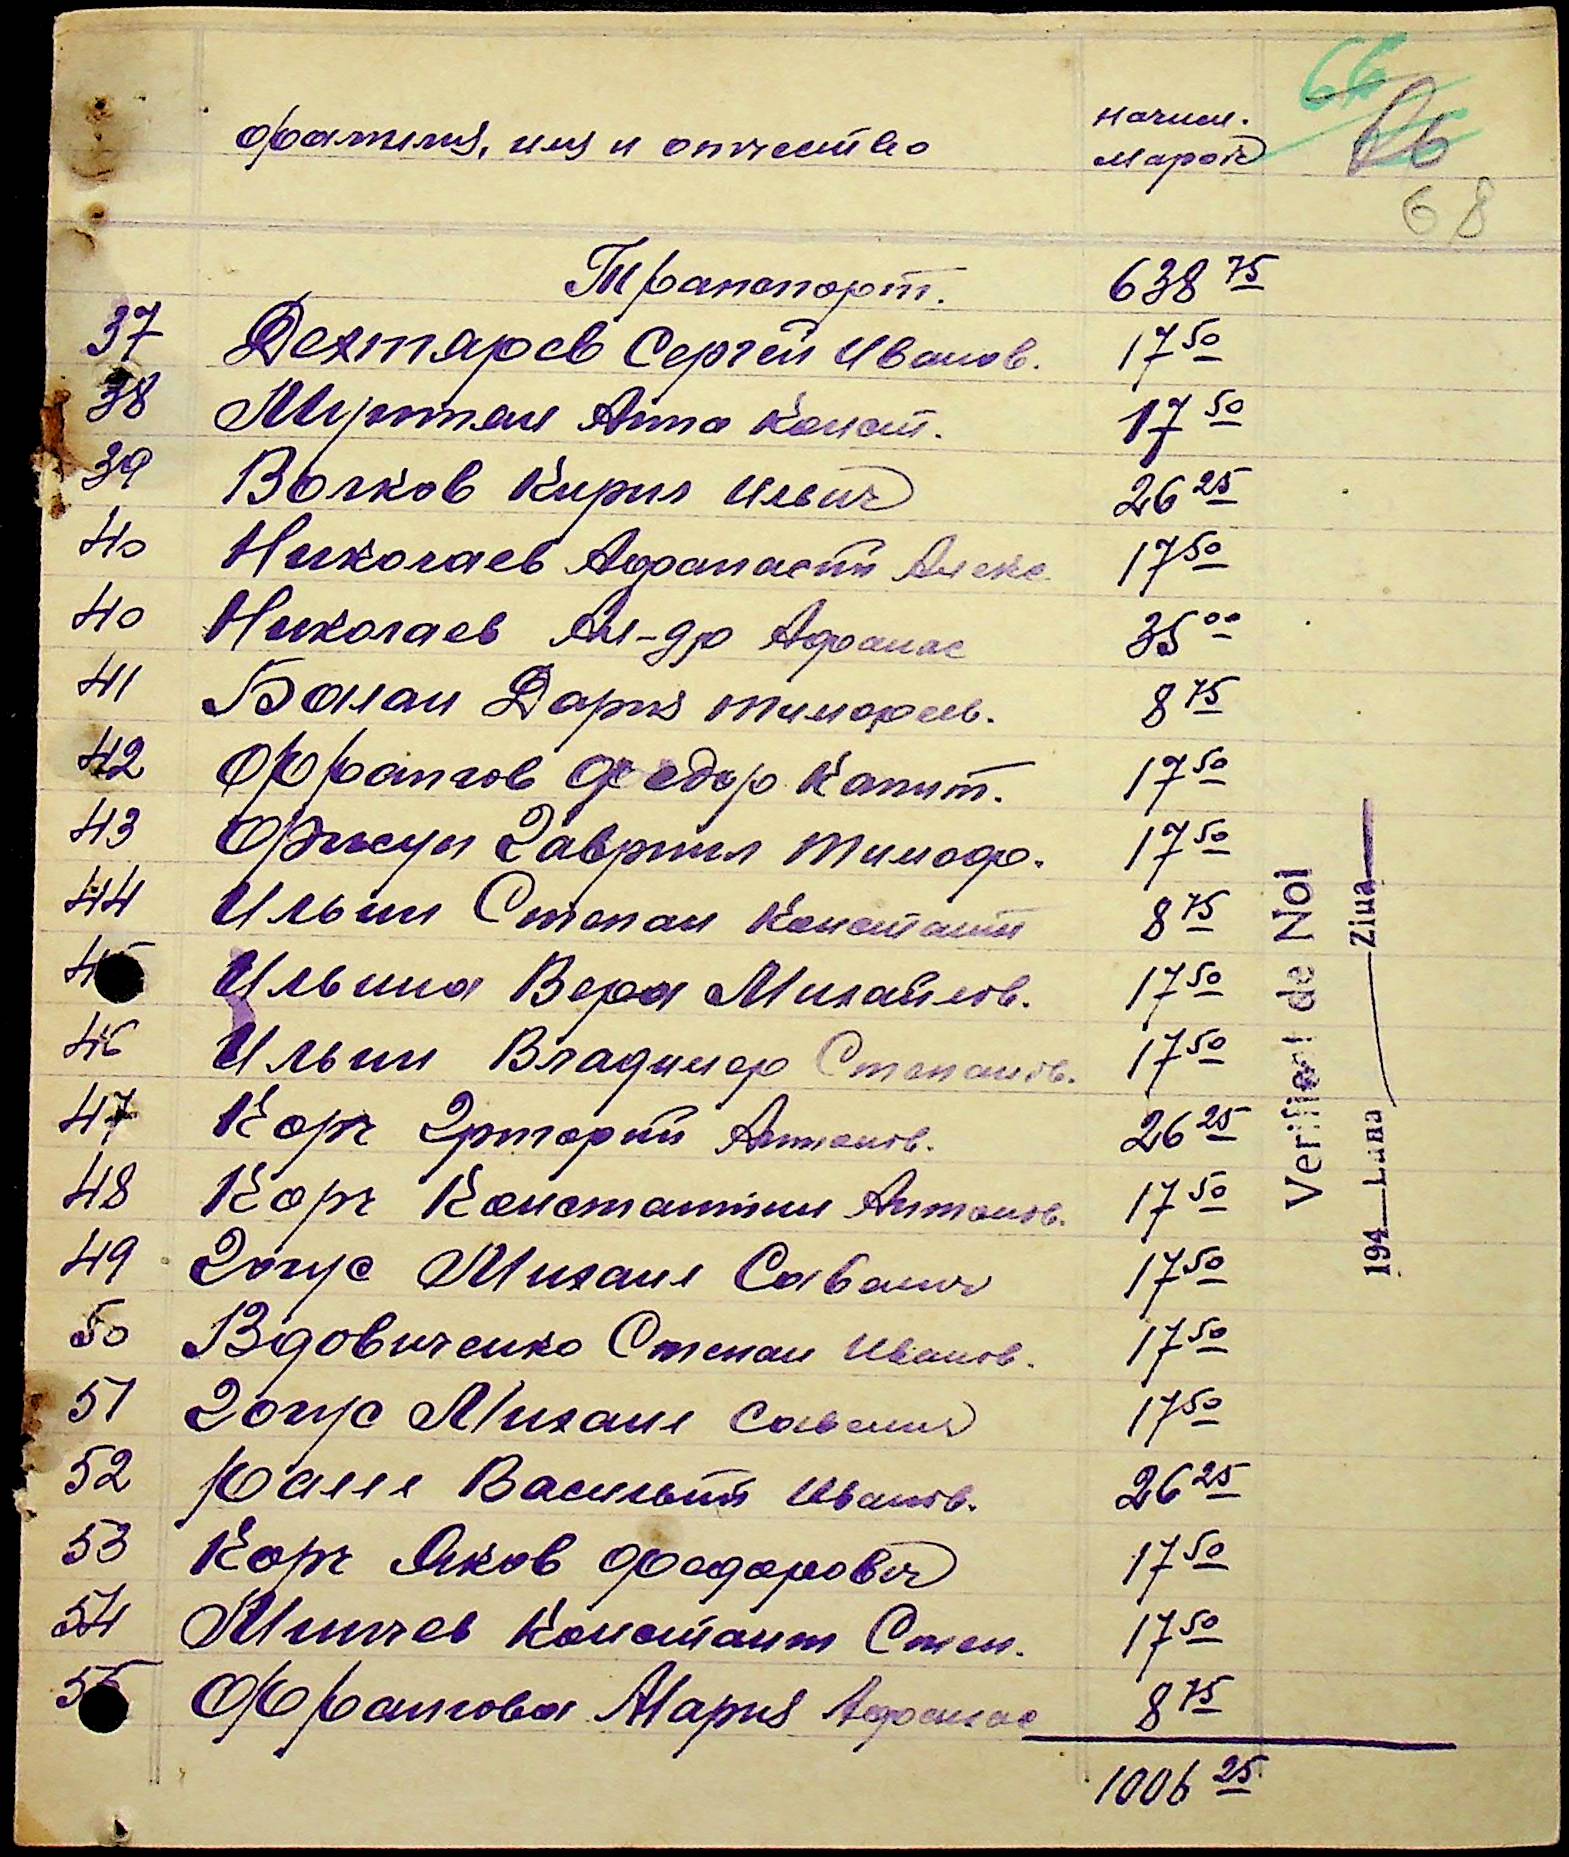 66
66
68
фамилия, имя и отчество начисл. марок
Транспорт. 638 75
37 Дехтярев Сергей Иванов. 17 50
38 Мунтян Анна Конст. 17 50
39 Волков Кирил Ильич 26 25
40 Николаев Афанасий Алекс 17 50
40 Николаев Ал-др Афанас 35 00
41 Балан Дария Тимофеев. 8 75
42 Францов Федор Капит. 17 50
43 Гавриил Тимоф. 17 50
44 Ильин Степан Константи 8 75
45 Ильина Вера Михайлов. 17 50
46 Ильин Владимер Степанов. 17 50
47 Корч Григорий Антонов. 26 25
48 Корч Константин Антонов. 17 50
49 Михаил Савелич 17 50
50 Вдовиченко Степан Иванов. 17 50
51 Михаил Савелич 17 50
52 Василий Иванов. 26 25
53 Корч Яков Федорович 17 50
54 Минчев Константин Степ. 17 50
55 Францова Мария Афанас 8 75
1006 25
Verificat de Noi
194 Luna Ziua